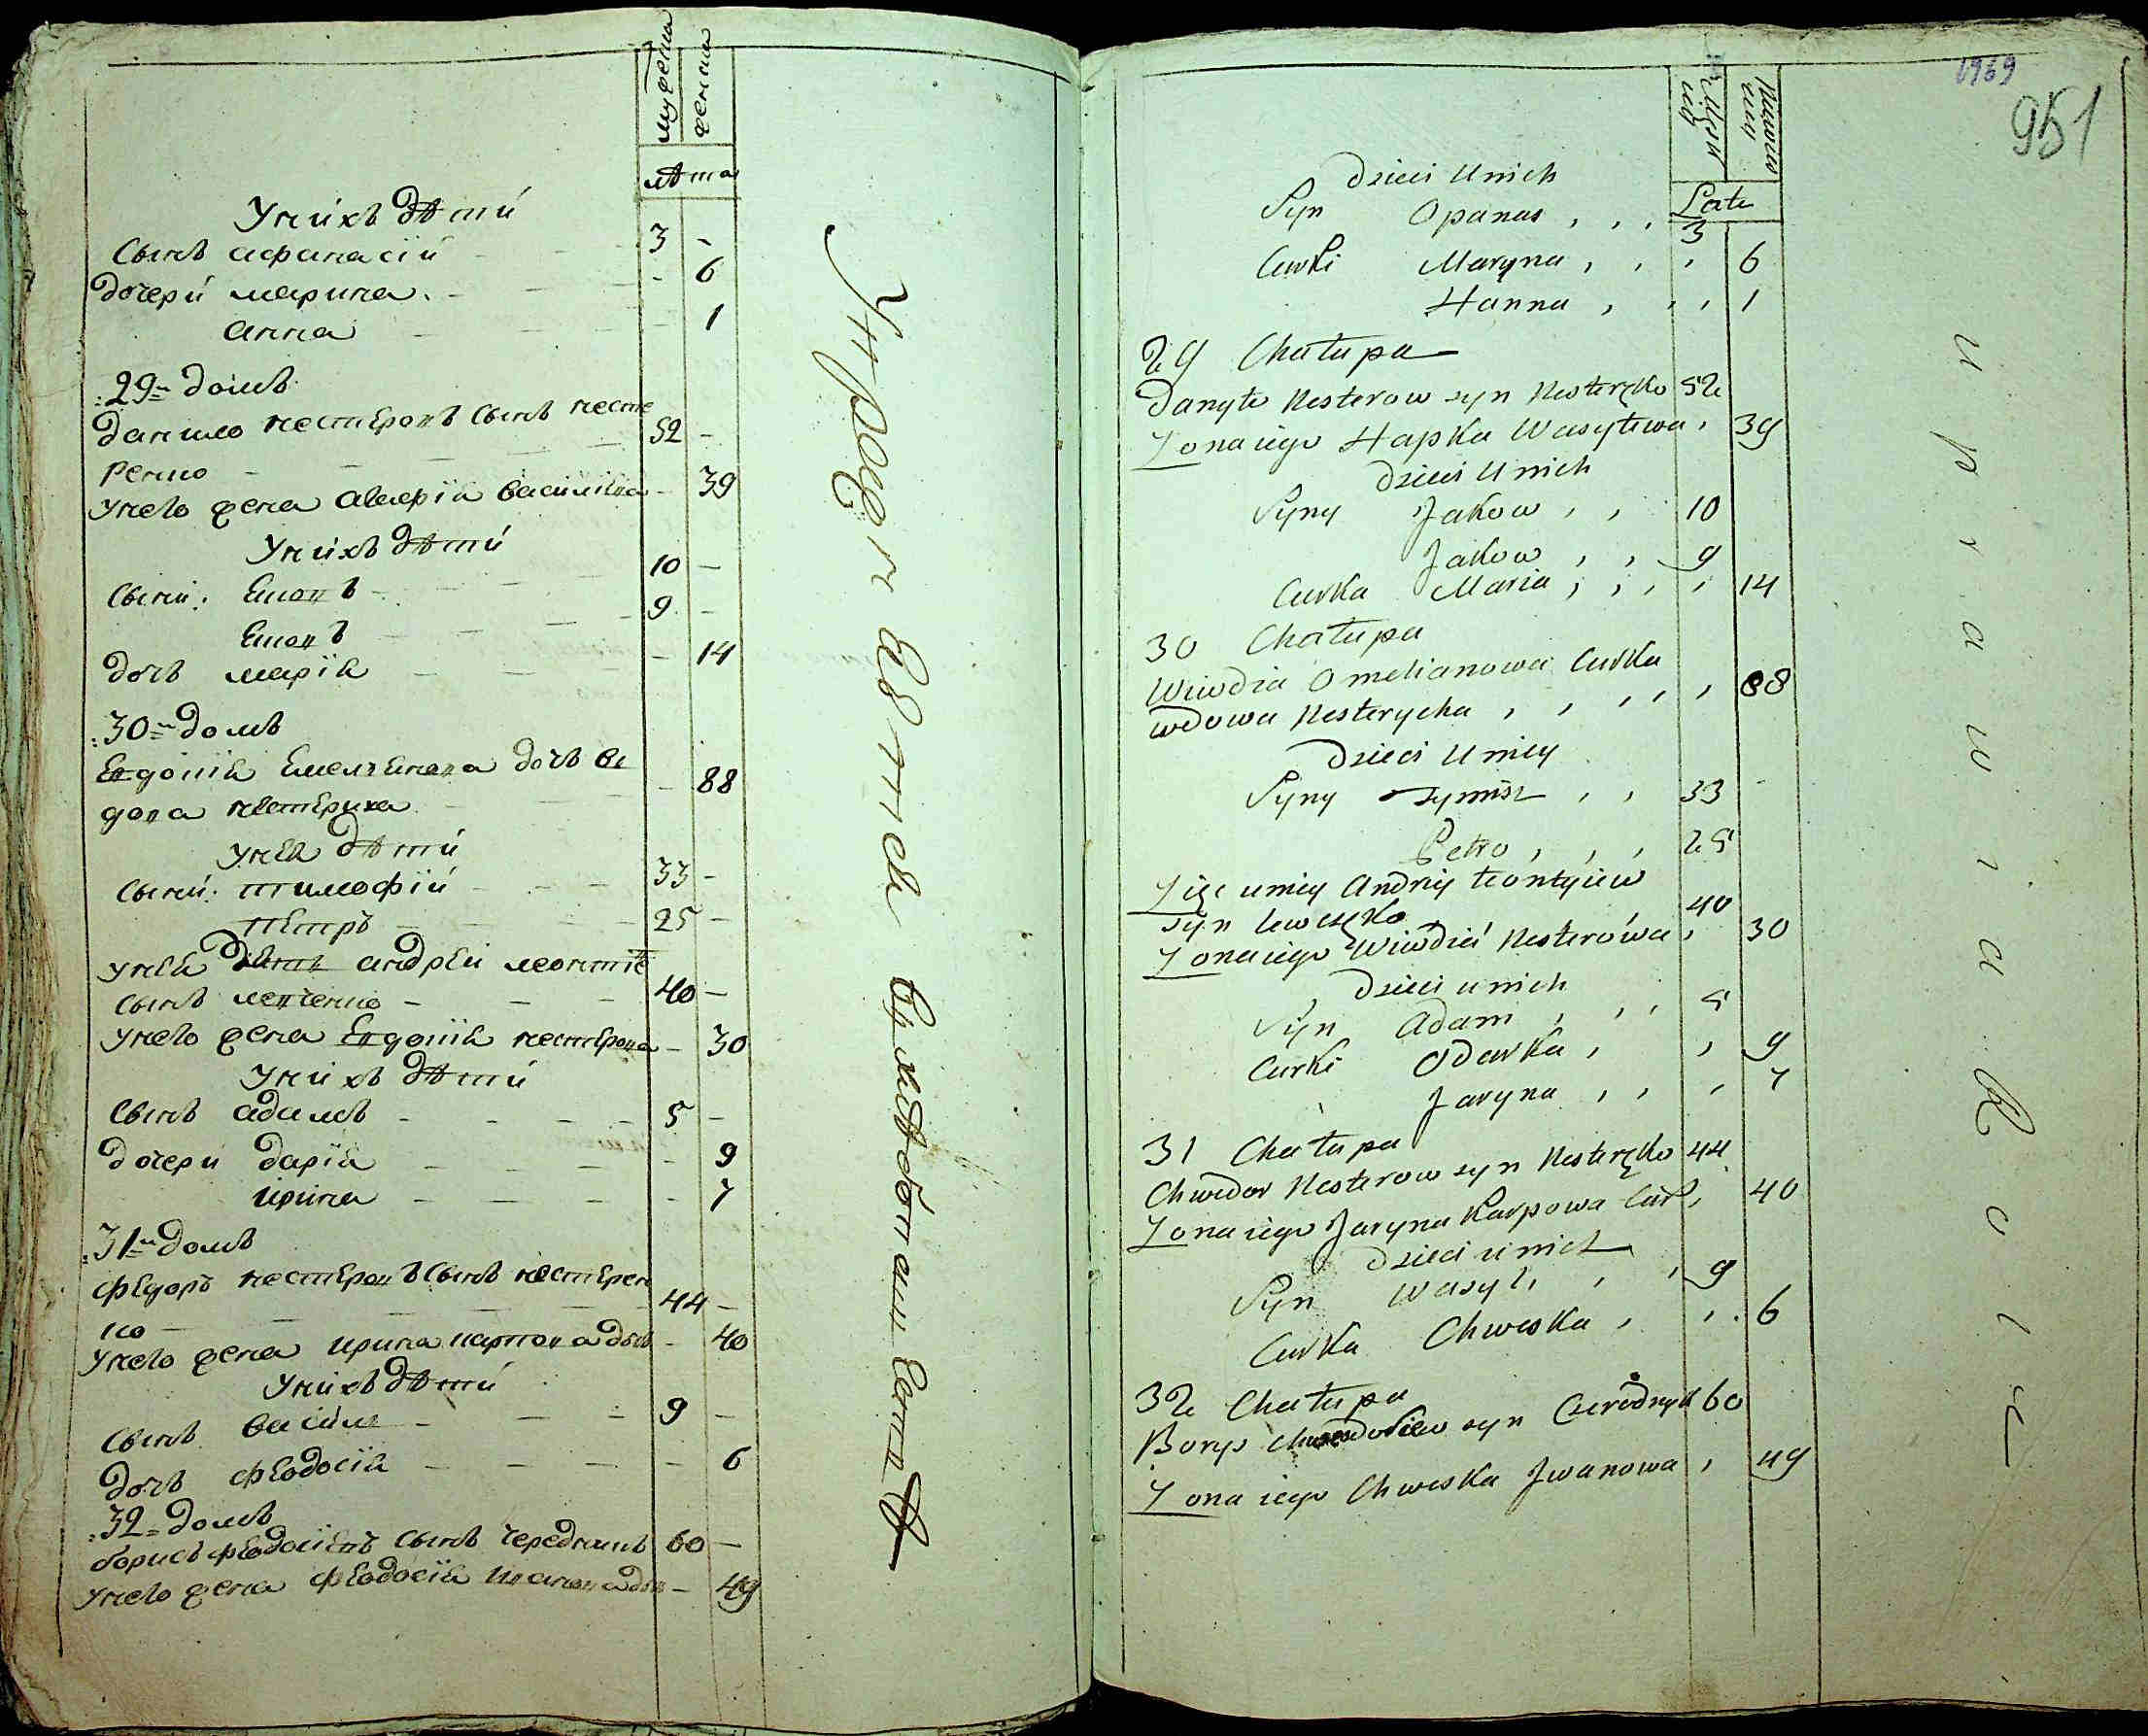 мужеска
женска
лѣта
У нихъ дѣти
Сынъ афанасій - 3 -
дочери марина. - - 6
анна - - 1
:29 = домъ
данило нестеровъ сынъ несте
ренко - 52 -
у него жена агафія василіева - 39
У нихъ дѣти
Сыни: Яковъ - 10 -
Яковъ - 9 -
дочь марія - - 14
:30 = домъ
Евдокія Емельянова дочь в
дова нестериха - - 88
у нея дѣти
Сыни: тимофій - 33 -
петръ - 25 -
у нея зять андрей леонтіе
сынъ левченко - 40 -
у него жена Евдокія нестерова - 30
У нихъ дѣти
Сынъ адамъ - 5 -
дочери дарія - - 9
ирина - - 7
:31 = домъ
федоръ нестеровъ сынъ нестерен
ко - 44 -
у него жена ирина карпова дочь - 40
У нихъ дѣти
Сынъ василь - 9 -
дочь феодосія - - 6
:32 = домъ
борисъ феодосіевъ сынъ чередникъ 60 -
у него жена феодосія иванова доч - 49
1969
951
Męzkiey
Niewieściey
Lata
Dzieci u nich
Syn Opanas , , , 3
Curki Maryna , , , 6
Hanna , , , 1
29 Chałupa
Danyło Nesterow syn Nesteręko 52
Zona iego Hapka Wasyłewa , 39
Dzieci u nich
Syny Jakow , , 10
Jakow , , 9
Curka Maria , , , , 14
30 Chałupa
Wiwdia Omelianowa Curka
wdowa Nesterycha , , , , , 88
Dzieci u niey
Syny Tymisz , , 33
Petro , , , 25
Zięć u niey Andrij Łeontyiew
syn Lewczęko , 40
Zona iego Wiwdia Nesterowa , 30
Dzieci u nich
Syn Adam , , , 5
Curki Odarka , , 9
Jaryna , , , 7
31 Chałupa
Chwedor Nesterow syn Nesteręko 44
Zona iego Jaryna Karpowa Cur , 40
Dzieci u nich
Syn Wasyl , , , 9
Curka Chweska , , . 6
32 Chałupa
Borys syn Czerodnyk 60
Zona iego Chweska Jwanowa , 49